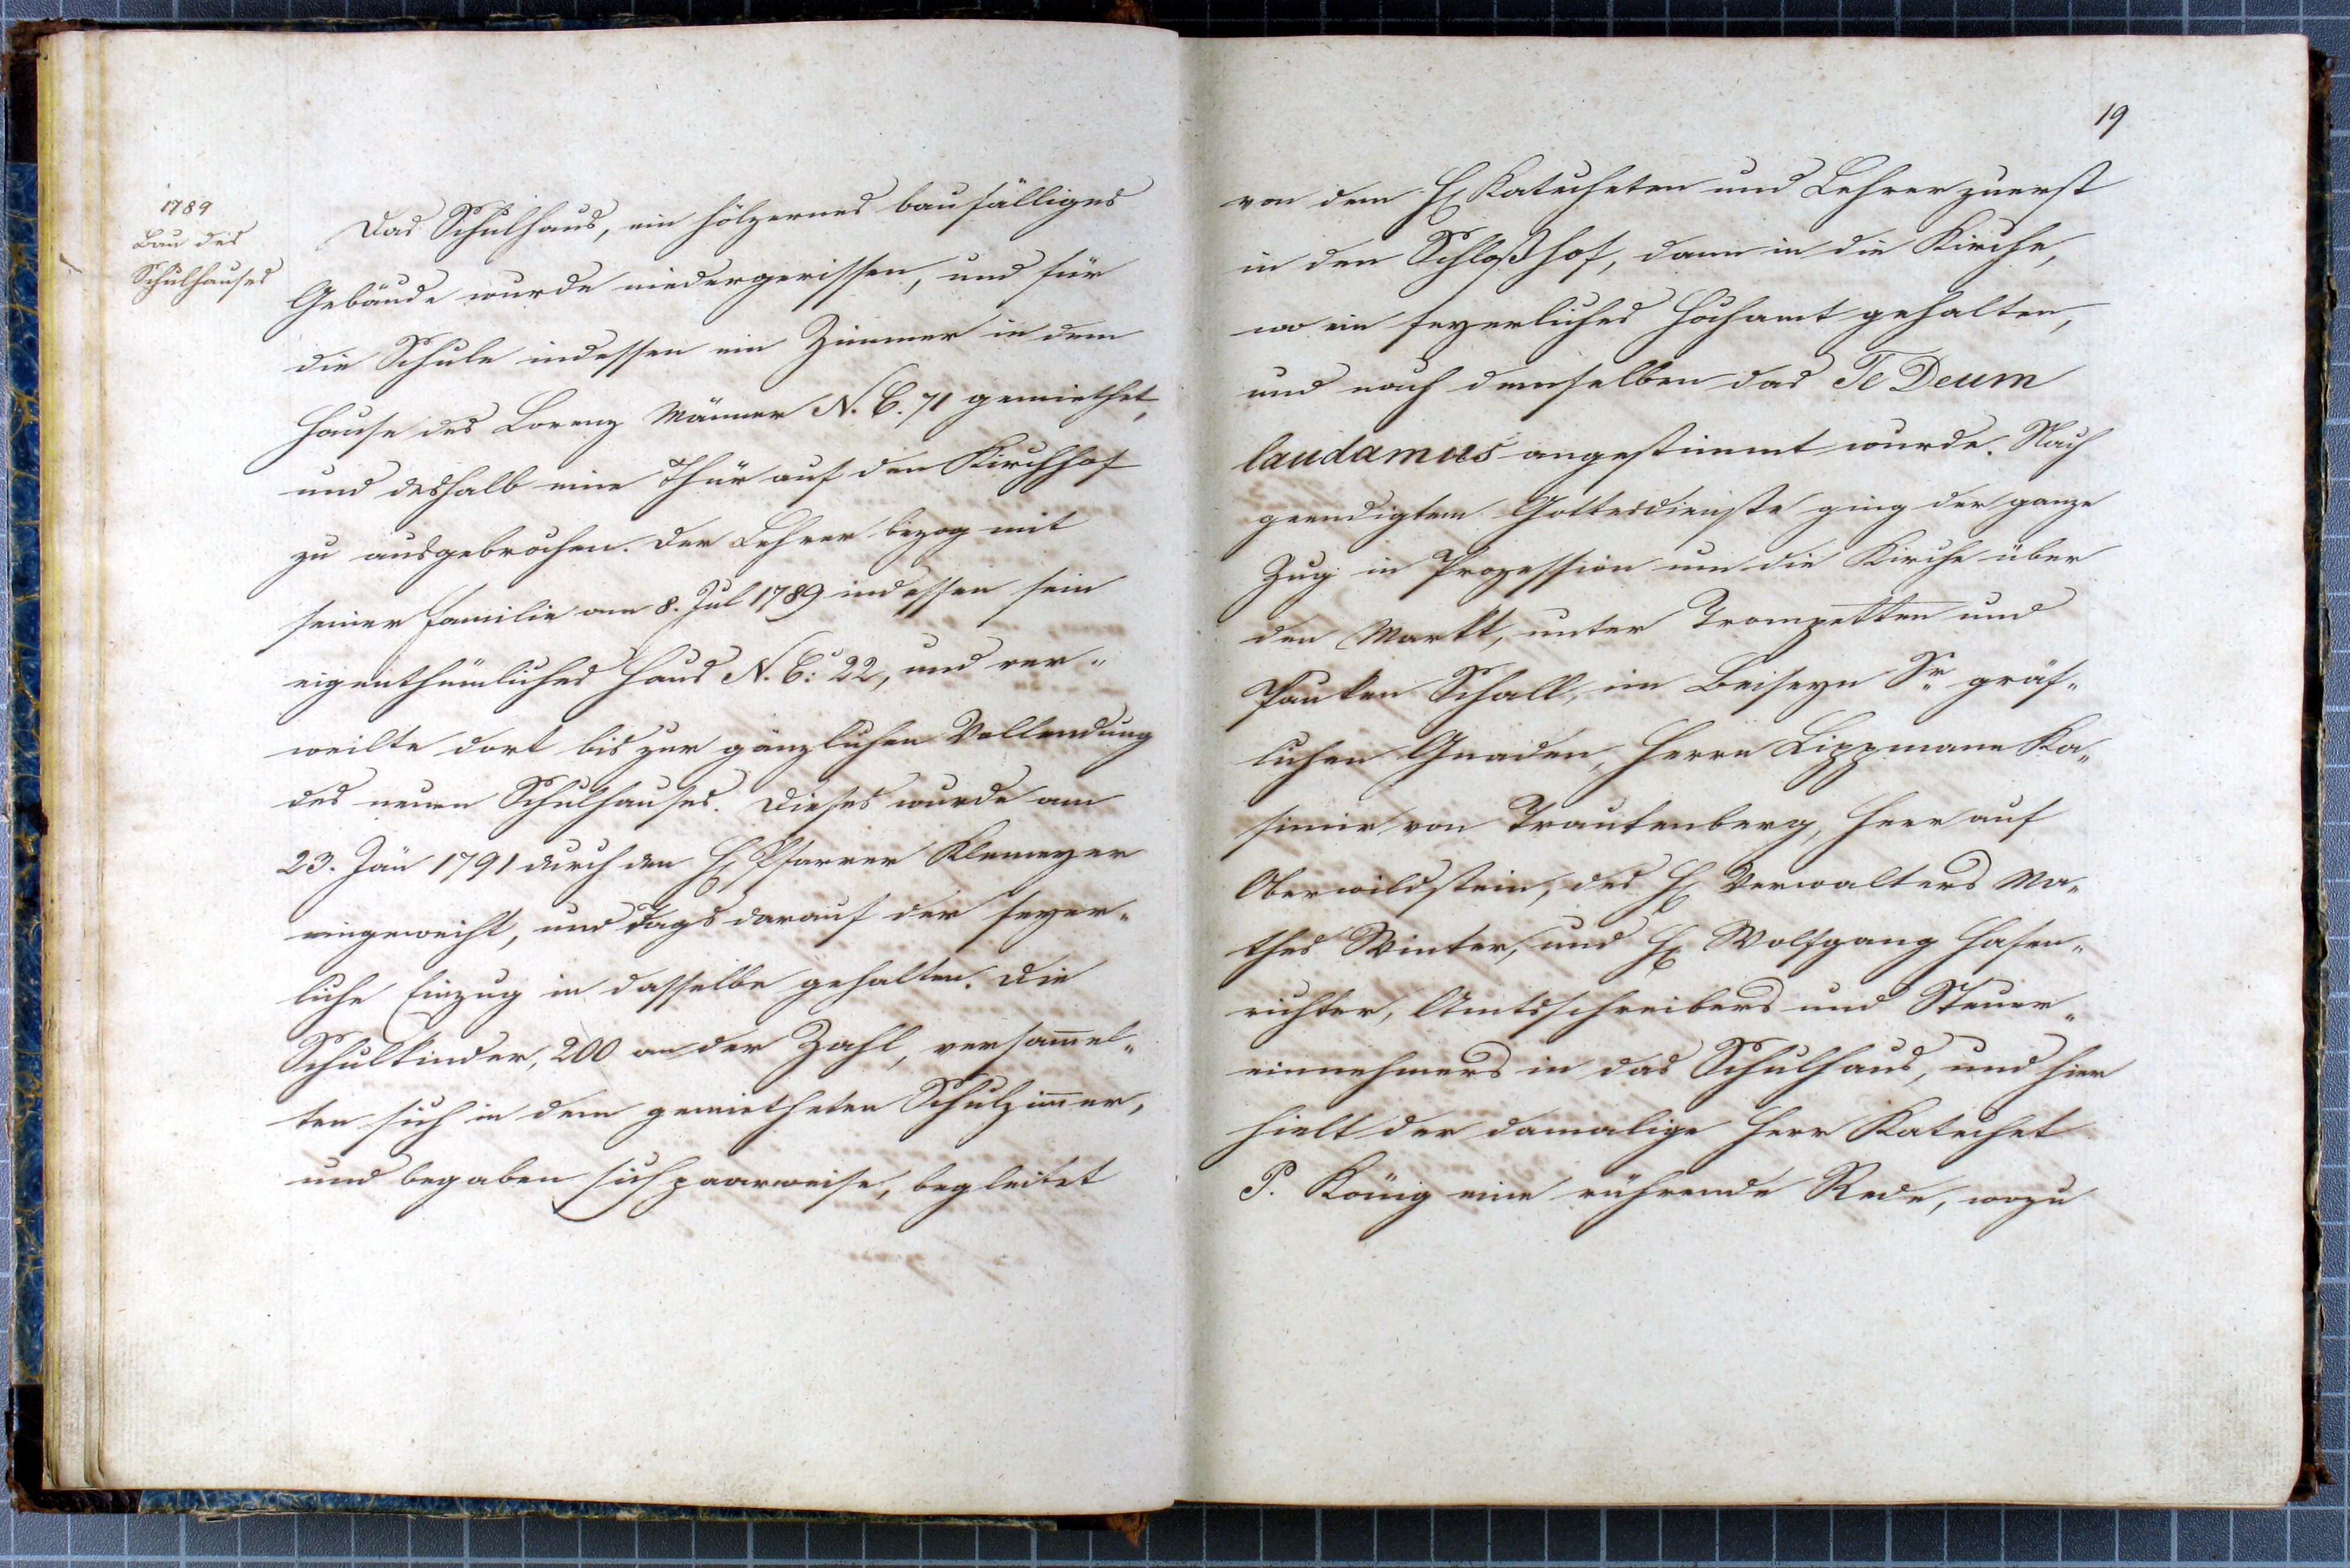 1789
Bau des
Schulhauses
Das Schulhaus, ein hölzernes baufälliges
Gebäude wurde niedergerissen, und für
die Schule indessen ein Zimmer in dem
Hause des Lorenz Männer N. C. 71 gemiethet,
und deshalb eine Thür auf den Kirchhof
zu ausgebrochen. Der Lehrer bezog mit
seiner Familie am 8. Jul 1789 indessen sein
eigenthümliches Haus N. C: 22, und ver„
weilte dort bis zur gänzlichen Vollendung
des neuen Schulhauses. Dieses wurde am
23. Jän 1791 durch den H. Pfarrer Klemeyer
eingeweiht, und Tags darauf der feyer„
liche Einzug in dasselbe gehalten. Die
Schulkinder, 200 an der Zahl, versam̄el„
ten sich in dem gemietheten Schulzim̄er,
und begaben sich paarweise, begleitet
19
von dem H. Katecheten und Lehrer zuerst
in den Schloßhof, dann in die Kirche,
wo ein feyerliches Hochamt gehalten,
und nach demselben das Te Deum
laudamus angestimmt wurde. Nach
geendigtem Gottesdienste ging der ganze
Zug in Prozession um die Kirche über
den Markt, unter Trompetten und
Pauken Schall, im Beiseyn Sr. gräf„
lichen Gnaden, Herrn Lippmann Ka„
simir von Trautenberg, Herr auf
Oberwildstein, des H. Verwalters Ma„
thes Winter, und H. Wolfgang Hasen„
richter, Amtsschreibers und Steuer„
einnehmers in das Schulhaus, und hier
hielt der damalige Herr Katechet
P. König eine rührende Rede, wozu